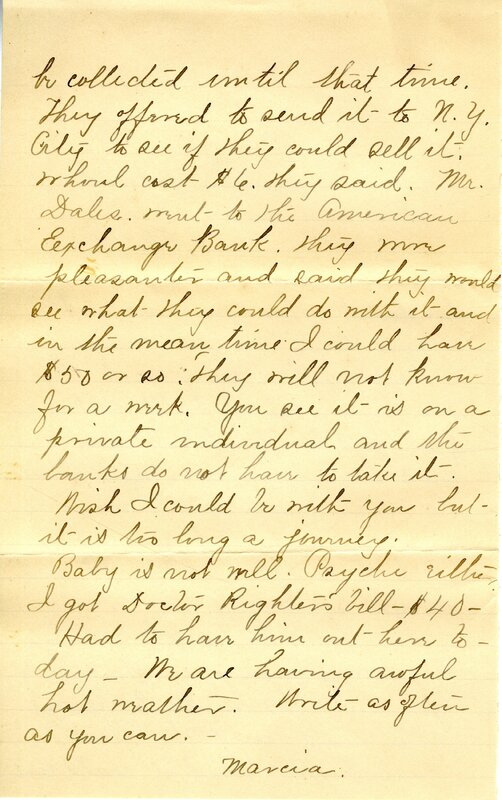 be collected until that time.
They offered to send it to N.Y.
City to see if they could sell it.
Whoul cost $6. they said. Mr.
Dales. went to the American
Exchange Bank. they were
pleasanter and said they would
see what they could do with it and
in the mean time I could have
$50 or so. They will not know
for a week. You see it is on a
private individual and the
banks do not have to take it.
Wish I could be with you but
it is too long a journey.
Baby is not well. Psyche either.
I got Doctor Righters bill - $40 -
Had to have him out here to-
day - We are having awful
hot weather. Write as often
as you can. -
Marcia.